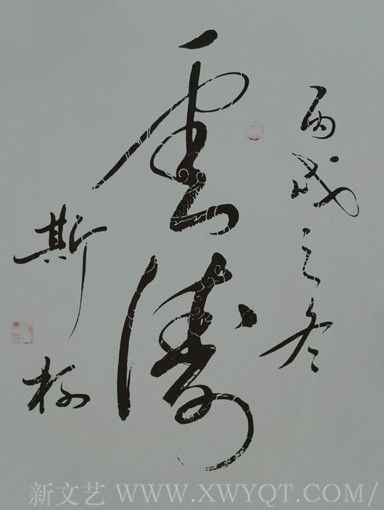 丙戌之冬
雲濤
斯
新文艺 WWW.XWYQT.COM/